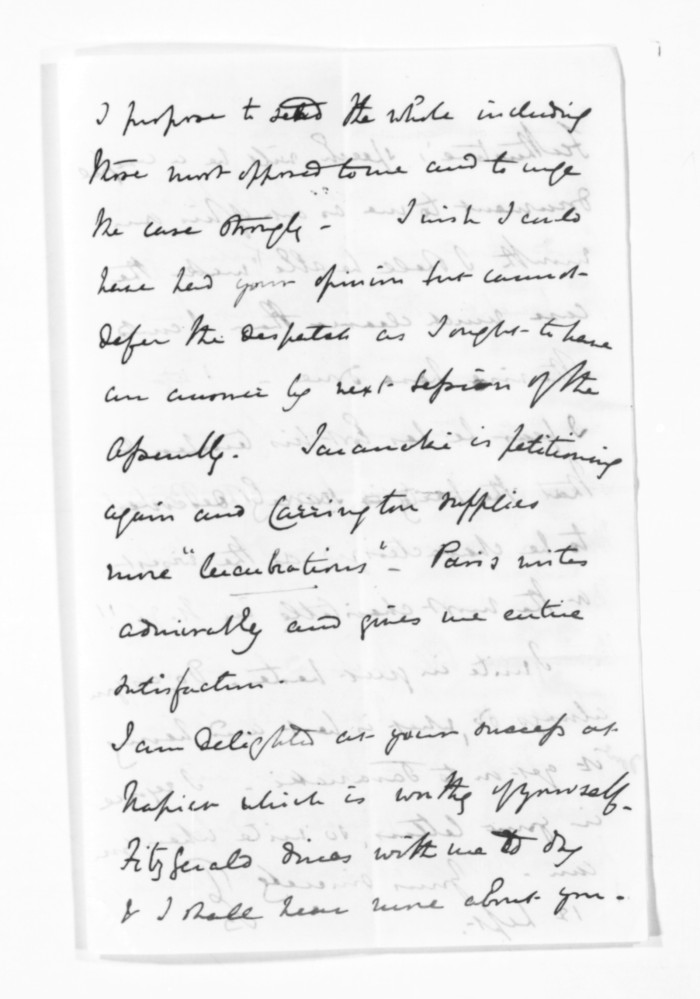 I propose to send the whole including
those most opposed to me and to urge
the case strongly - I wish I could
have had your opinion but cannot
defer the despatch as I ought to have
an answer by next Session of the
Assembly. Taranaki is petitioning
again and Carrington supplies
more "lucubrations" - Paris writes
admirably and gives me entire
satisfaction.
I am delighted at your success at
Napier which is worthy of yourself.
FitzGerald dines with me to day
& I shall hear more about you.